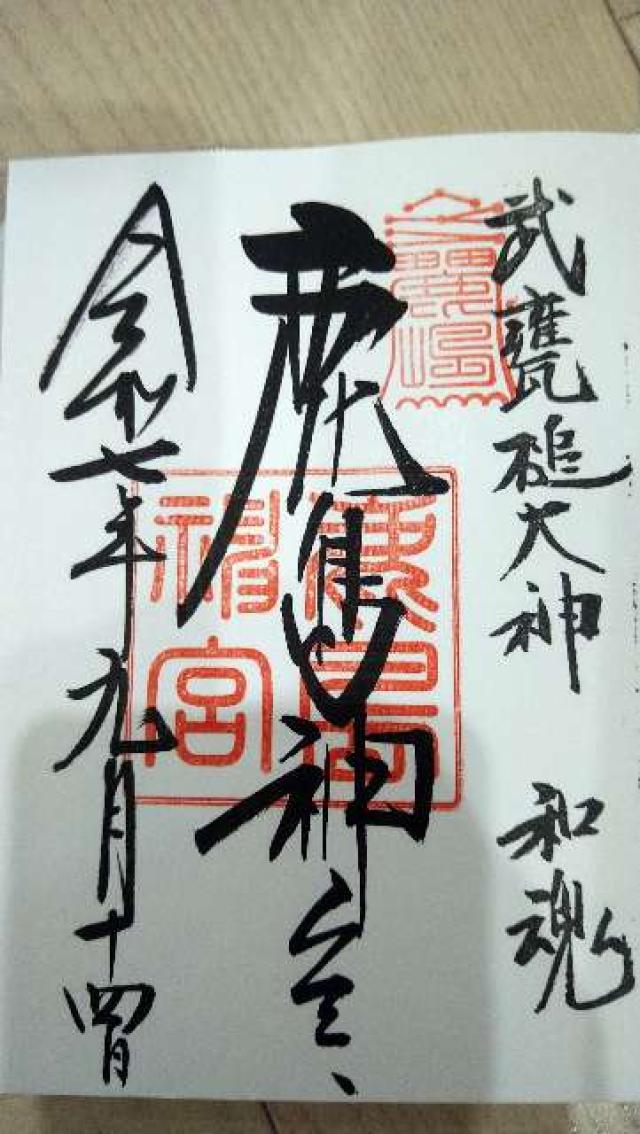 武甕槌大神 和魂
鹿島神宮
令和七年九月十四日
鹿島
神宮